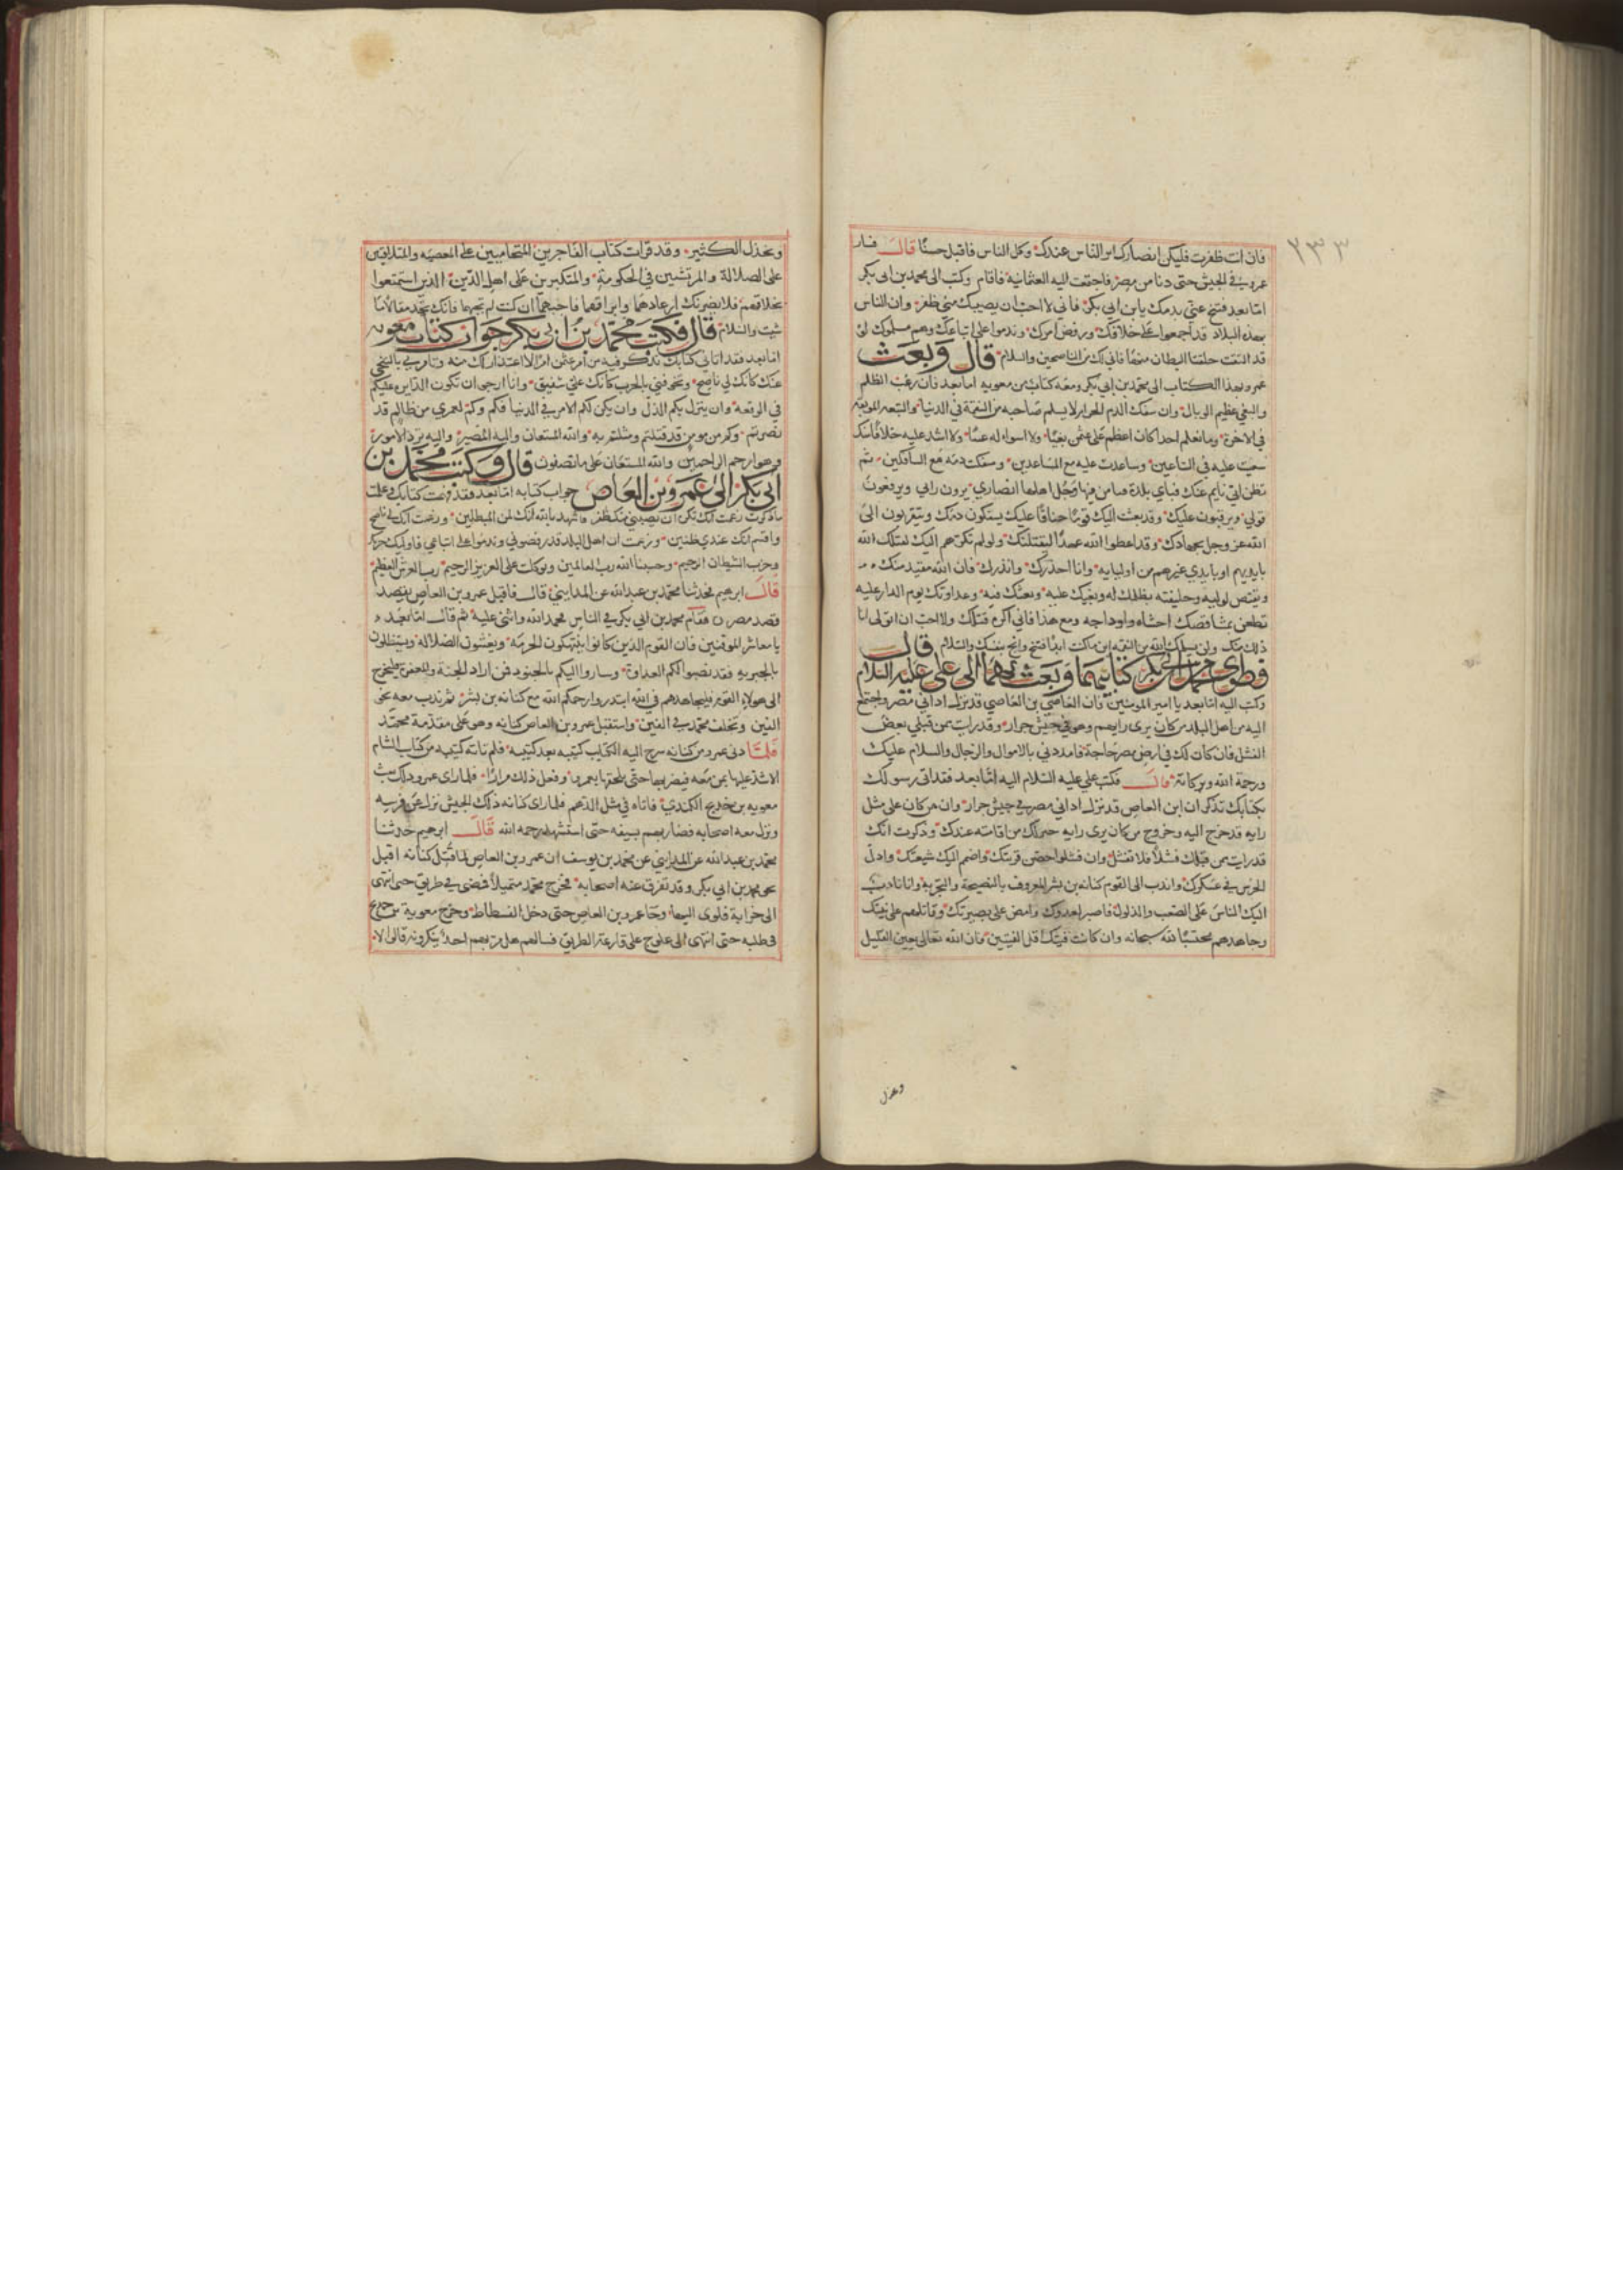 ٢٣٣
فان انت ظفرت فليكن انصارك اثر الناس عندك وكل الناس فاقبل حسنًا قال فسار
عمرو في الجيش حتى دنا من مصر فاجتمعت اليه العثمانية فاقام وكتب الى محمد بن ابي بكر
اما بعد فتنح عني بدمك يابن ابي بكر فاني لا احب ان يصيبك مني ظفر وان الناس
بهذه البلاد قد اجمعوا على خلافك ورفض امرك وندموا على اتباعك وهم مسلموك لو
قد التقت حلقتا البطان منها فاني لك من الناصحين والسلام قال وبعث
عمرو بهذا الكتاب الى محمد بن ابي بكر ومعه كتاب من معويه اما بعد فان غب الظلم
والبغي عظيم الوبال وان سفك الدم الحرام لا يسلم صاحبه من النقمة في الدنيا والتبعه الموبقة
في الاخرة وما نعلم احدا كان اعظم على عثمن بغيًا ولا اسوا له عيبًا ولا اشد عليه خلافا منك
سعيت عليه في الساعين وساعدت عليه مع المساعدين وسفكت دمه مع السافكين ثم
تظن اني نايم عنك فتاتي بلدة فتامن فيها وجل اهلها انصاري يرون رايي ويرفعون
قولي ويرقبون عليك وقد بعثت اليك قومًا حناقًا عليك يسفكون دمك ويتقربون الى
الله عز وجل بجهادك وقد اعطوا الله عهدًا ليقتلنك ولو لم يكن منهم اليك لقتلك الله
بايديهم او بايدي غيرهم من اوليايه وانا احذرك وانذرك فان الله مقيد منك
ومقتص لوليه وخليفته بظلمك له وبغيك عليه وعداوتك يوم الدار عليه
تطعن بمشاقصك احشاه واوداجه ومع هذا فاني اكره قتلك ولا احب ان اتولى
ذلك منك ولن يسلمك الله من النقمة اين ما كنت ابدا فتنح وانج بنفسك والسلام قال
فطوى محمد بن ابي بكر كتابيهما وبعث بهما الى علي عليه السلام
وكتب اليه اما بعد يا امير المومنين فان العاصي بن العاصي قد نزل اداني مصر واجتمع
اليه من اهل البلد من كان يرى رايهم وهو في جيش جرار وقد رايت ممن قبلي بعض
الفشل فان كان لك في ارض مصر حاجة فامددني بالاموال والرجال والسلام عليك
ورحمة الله وبركاته قال فكتب علي عليه السلام اليه اما بعد فقد اتى رسولك
بكتابك تذكر ان ابن العاص قد نزل اداني مصر في جيش جرار وان من كان على مثل
رايه قد خرج اليه وخروج من كان يرى رايه خير لك من اقامته عندك وذكرت انك
قد رايت ممن قبلك فشلًا فلا تفشل وان فشلوا حصن قريتك واضمم اليك شيعتك واذك
الحرس في عسكرك واندب الى القوم كنانه بن بشر المعروف بالنصيحة والتجربه وانا نادب
اليك الناس على الصعب والذلول فاصبر لعدوك وامض على بصيرتك وقاتلهم على نيتك
وجاهدهم محتسبًا لله سبحانه وان كانت فيتك اقل الفيتين فان الله تعالى يعين القليل
ويخذل
ويخذل الكثير وقد قرات كتاب الفاجرين المتحابين على المعصيه والمتلاقين
على الضلالة والمرتشين في الحكومة والمتكبرين على اهل الدين الذين استمتعوا
بخلاقهم فلا يضرنك ارعادهما وابراقهما واجبهما ان كنت لم تجبهما فانك تجد مقالا ما
شيت والسلام قال فكتب محمد بن ابي بكر جواب كتاب معويه
اما بعد فقد اتاني كتابك تذكر فيه من امر عثمن امرًا لا اعتذر اليك منه وتامرني بالتنحي
عنك كانك لي ناصح وتخوفني بالحرب كانك علي شفيق وانا ارجو ان تكون الدايرة عليكم
في الوقعة وان ينزل بكم الذل وان يكن لكم الامر في الدنيا فكم وكم لعمري من ظالم قد
نصرتم وكم من مومن قد قتلتم ومثلتم به والله المستعان والى الله المصير واليه ترد الامور
وهو ارحم الراحمين والله المستعان على ما تصفون قال وكتب محمد بن
ابي بكر الى عمرو بن العاص جواب كتابه اما بعد فقد فهمت كتابك وعلمت
ما ذكرت زعمت انك تكره ان يصيبني منك ظفر فاشهد بالله انك لمن المبطلين وزعمت انك لي ناصح
واقسم انك عندي ظنين وزعمت ان اهل البلد قد رفضوني وندموا على اتباعي فاوليك حزبك
وحزب الشيطان الرجيم وحسبنا الله رب العالمين وتوكلت على العزيز الرحيم رب العرش العظيم
قال ابرهيم فحدثنا محمد بن عبد الله عن المدايني قال فاقبل عمرو بن العاص يقصد
قصد مصر فقام محمد بن ابي بكر في الناس فحمد الله واثنى عليه ثم قال اما بعد
يا معاشر المومنين فان القوم الذين كانوا ينتهكون الحرمة ويغشون الضلالة ويستطيلون
بالجبريه فقد نصبوا لكم العداوة وساروا اليكم بالجنود فمن اراد الجنة والمغفرة فليخرج
الى هولاء القوم فليجاهدهم في الله انتدبوا رحمكم الله مع كنانه بن بشر ثم ندب معه نحو
الفين وتخلف محمد في الفين واستقبل عمرو بن العاص كنانه وهو على مقدمة محمد
فلما دنا عمرو من كنانه سرح اليه الكتايب كتيبه بعد كتيبه فلم تاته كتيبه من كتايب الشام
الا شد عليها بمن معه فيضربها حتى يلحقها بعمرو وفعل ذلك مرارًا فلما راى عمرو ذلك بعث
معويه بن خديج الكندي فاتاه في مثل الدهم فلما راى كنانه ذلك الجيش نزل عن فرسه
ونزل معه اصحابه فضاربهم بسيفه حتى استشهد رحمه الله قال ابرهيم حدثنا
محمد بن عبد الله عن المدايني عن محمد بن يوسف ان عمرو بن العاص لما قتل كنانه اقبل
نحو محمد بن ابي بكر وقد تفرق عنه اصحابه فخرج محمد متمهلًا فمضى في طريق حتى انتهى
الى خرابة فاوى اليها وجا عمرو بن العاص حتى دخل الفسطاط وخرج معوية بن خديج
في طلبه حتى انتهى الى علوج على قارعة الطريق فسالهم هل مر بهم احد ينكرونه قالوا لا